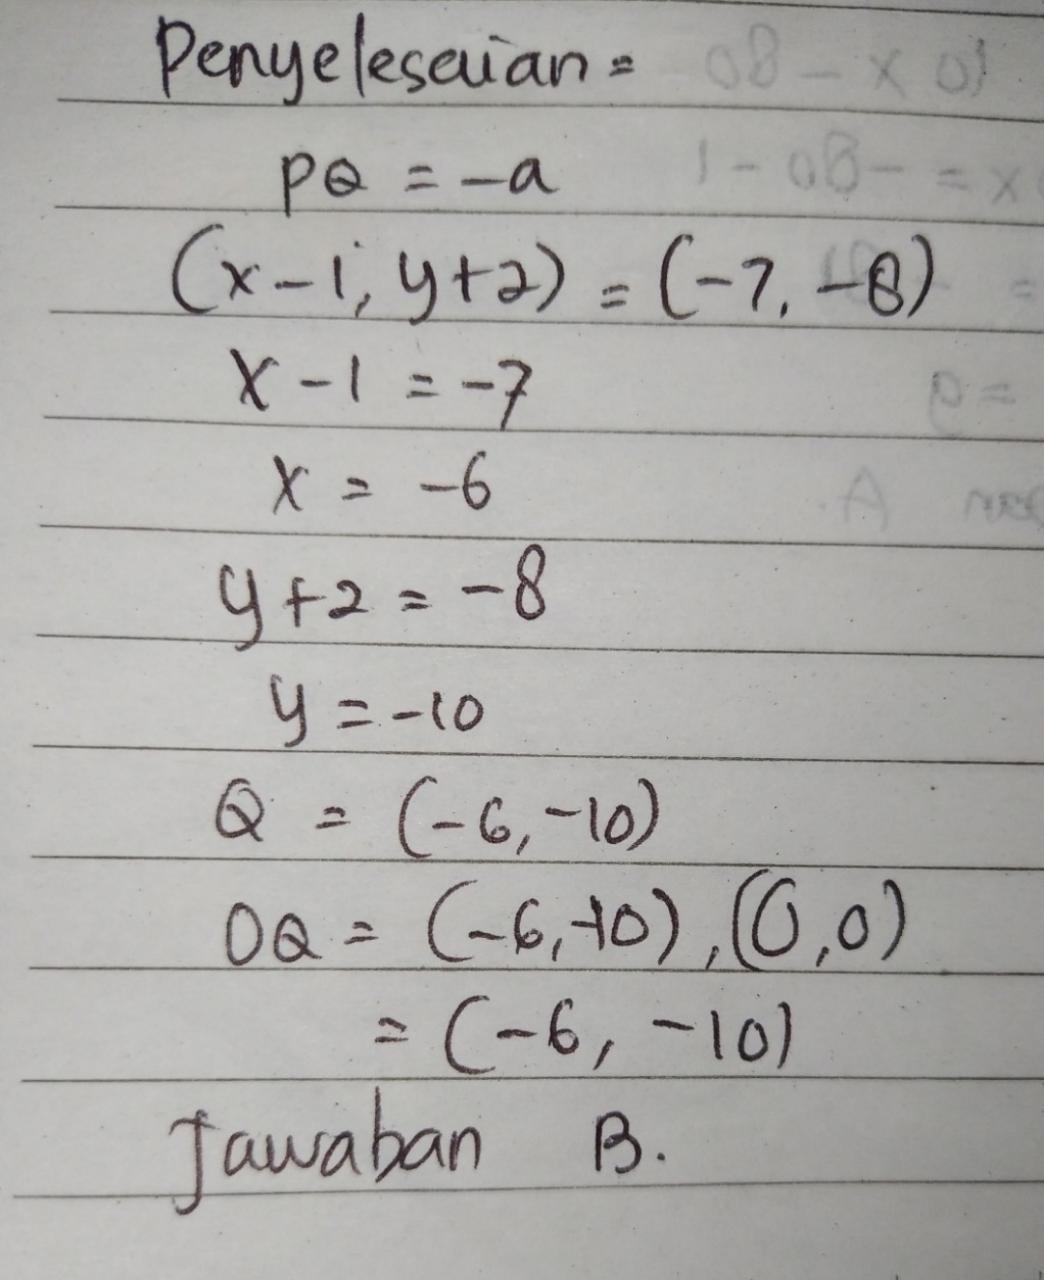 Penyelesaian =
PQ = -a
(x-1, y+2) = (-7, -8)
x-1 = -7
x = -6
y+2 = -8
y = -10
Q = (-6, -10)
OQ = (-6,-10), (0,0)
= (-6, -10)
Jawaban B.